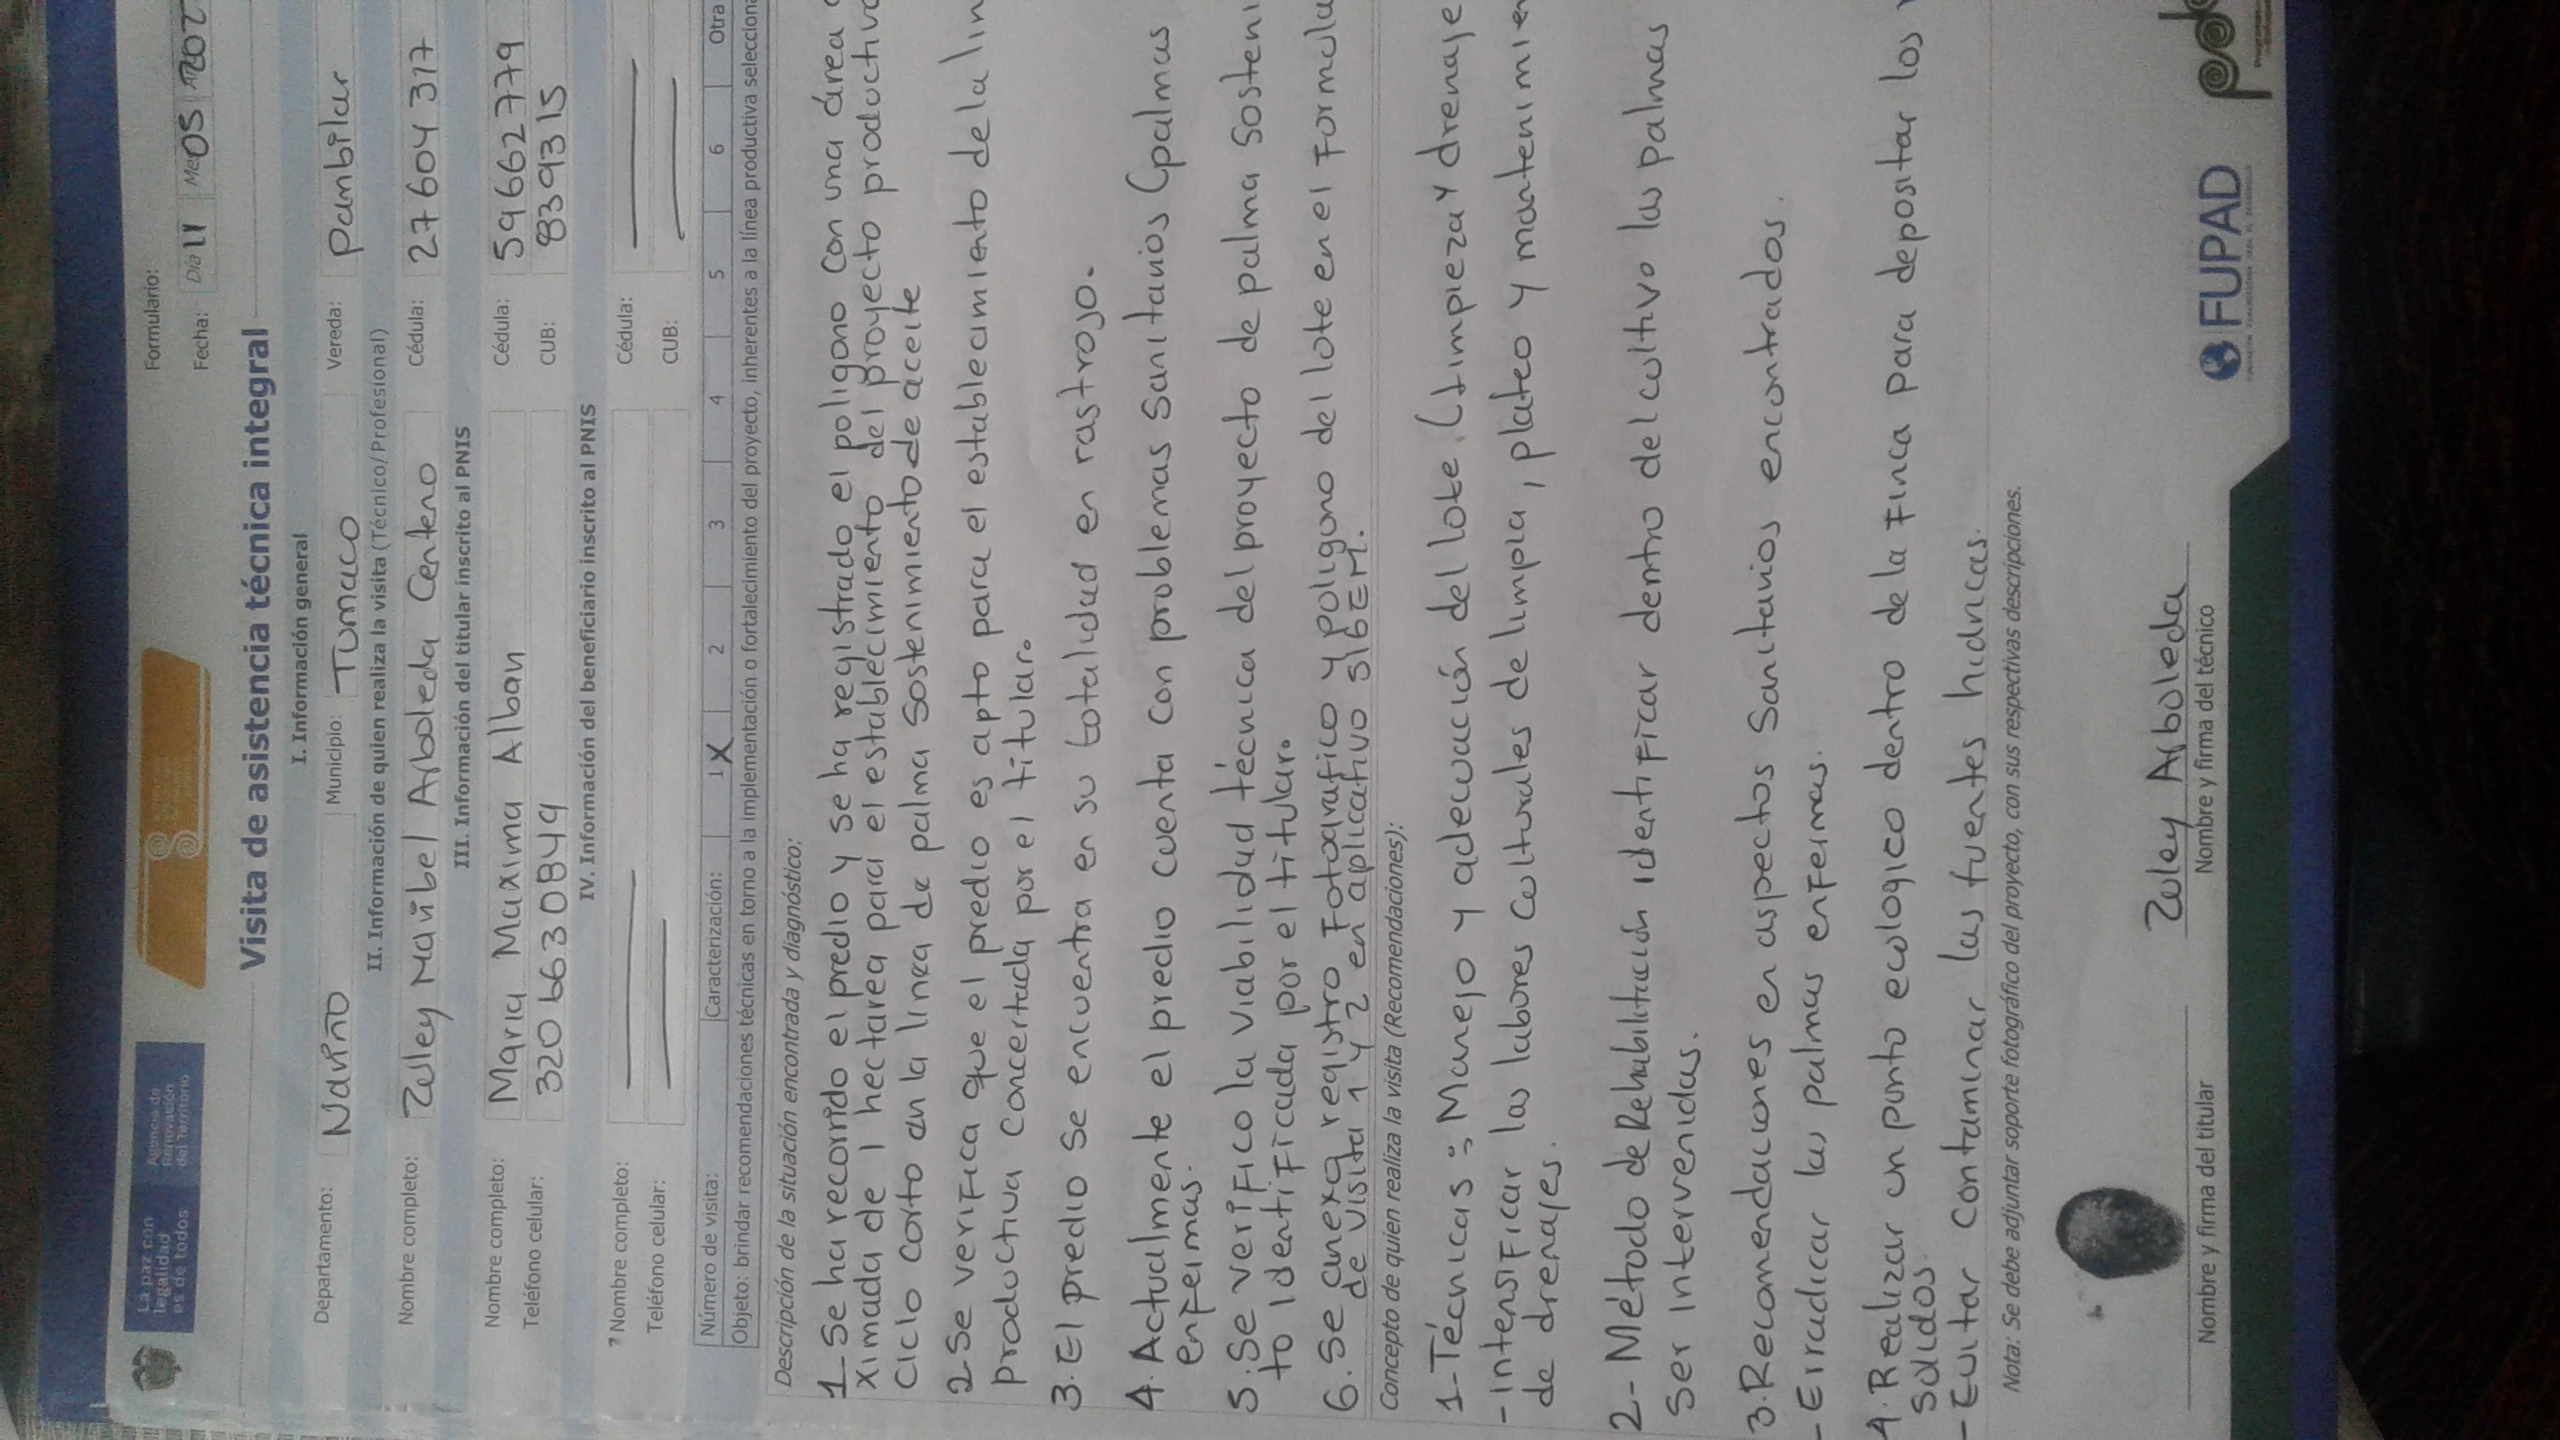 La paz con
legalidad
es de todos
Agencia de
Renovación
del Territorio
Formulario:
Fecha: Día 11 Me 05 A 202
Visita de asistencia técnica integral
I. Información general
Departamento: Nariño Municipio: Tumaco Vereda: Pambilar
II. Información de quien realiza la visita (Técnico/Profesional)
Nombre completo: Zulley Maribel Arboleda Centeno Cédula: 27604317
III. Información del titular inscrito al PNIS
Nombre completo: Maria Maxima Alban Cédula: 59662779
Teléfono celular: 3206630849 CUB: 839315
IV. Información del beneficiario inscrito al PNIS
Nombre completo: Cédula:
Teléfono celular: CUB:
Número de visita: Caracterización: 1 X 2 3 4 5 6 Otra
Objeto: brindar recomendaciones técnicas en torno a la implementación o fortalecimiento del proyecto, inherentes a la línea productiva selecciona
Descripción de la situación encontrada y diagnóstico:
1- Se ha recorrido el predio y se ha registrado el poligono con una área
ximada de 1 hectarea para el establecimiento del proyecto productivo
Ciclo corto en la linea de palma Sostenimiento de aceite
2- Se verifica que el predio es apto para el establecimiento de la lin
productiva concertada por el titular.
3. El predio se encuentra en su totalidad en rastrojo.
4. Actualmente el predio cuenta con problemas Sanitarios (palmas
enfermas.
5. Se verifico la viabilidad técnica del proyecto de palma Sosteni
to identificada por el titular.
6. Se anexa registro Fotografico y poligono del lote en el Formula
de visita 1 y 2 en aplicativo SIGEM.
Concepto de quien realiza la visita (Recomendaciones):
1- Técnicas: Manejo y adecuación del lote. (Limpieza y drenaje
- intensificar las labores culturales de limpia, plateo y mantenimien
de drenajes.
2- Método de Rehabilitación identificar dentro del cultivo las palmas
Ser intervenidas.
3. Recomendaciones en aspectos Sanitarios encontrados.
- Erradicar las palmas enfermas.
4. Realizar un punto ecologico dentro de la Finca para depositar los
Solidos.
- Evitar contaminar las fuentes hidricas.
Nota: Se debe adjuntar soporte fotográfico del proyecto, con sus respectivas descripciones.
Zuley Arboleda
Nombre y firma del titular Nombre y firma del técnico
FUPAD